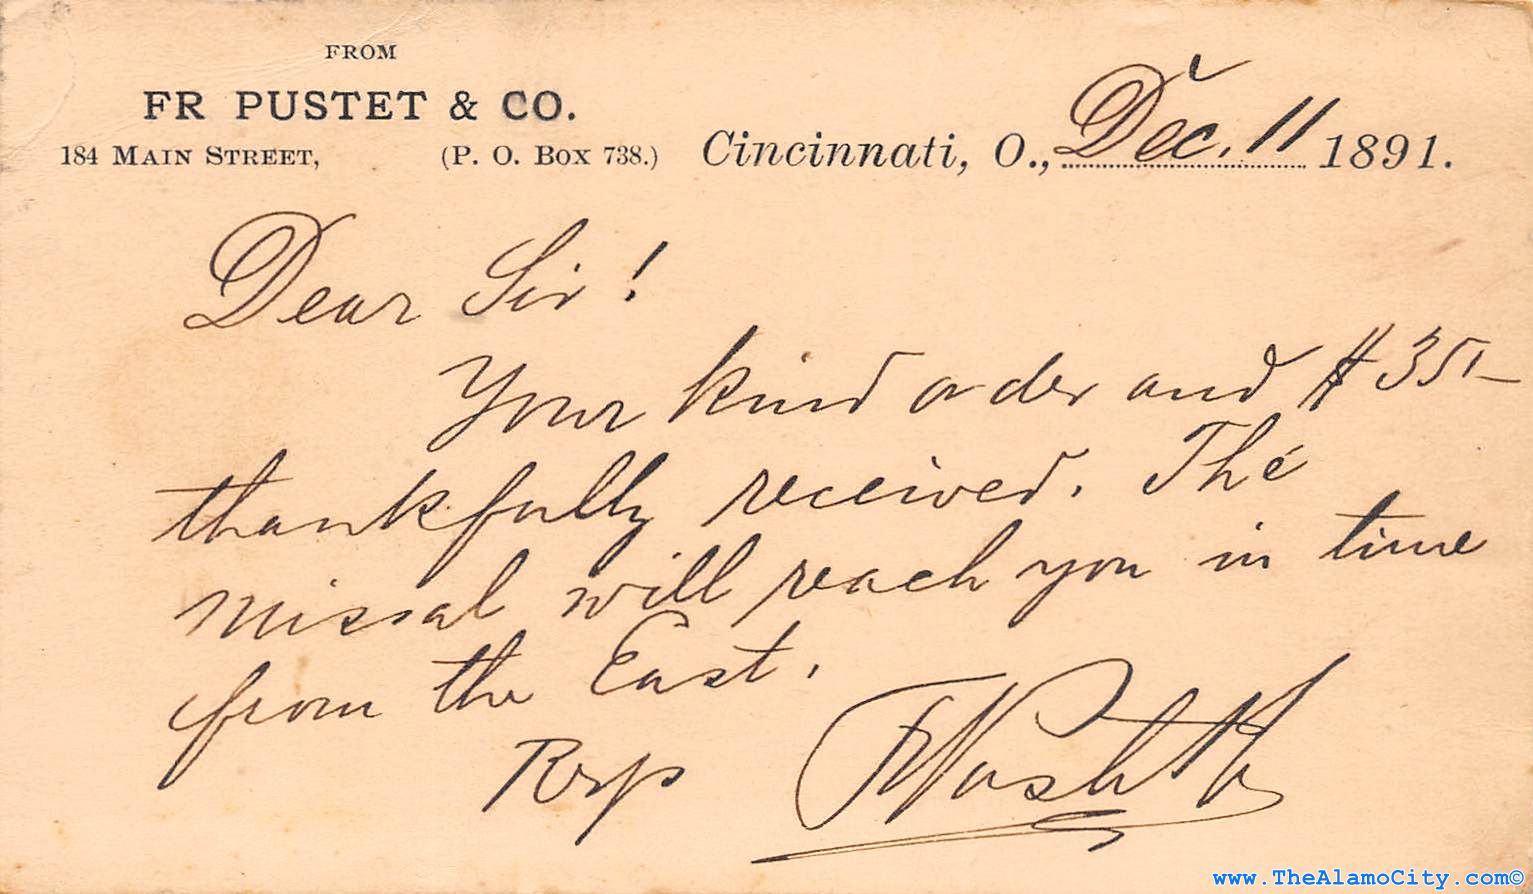 FROM
FR PUSTET & CO.
184 MAIN STREET, (P. O. BOX 738.) Cincinnati, O., Dec. 11 1891.
Dear Sir!
Your kind order and $35.–
thankfully received. The
missal will reach you in time
from the East.
Rsp
www.TheAlamoCity.com©